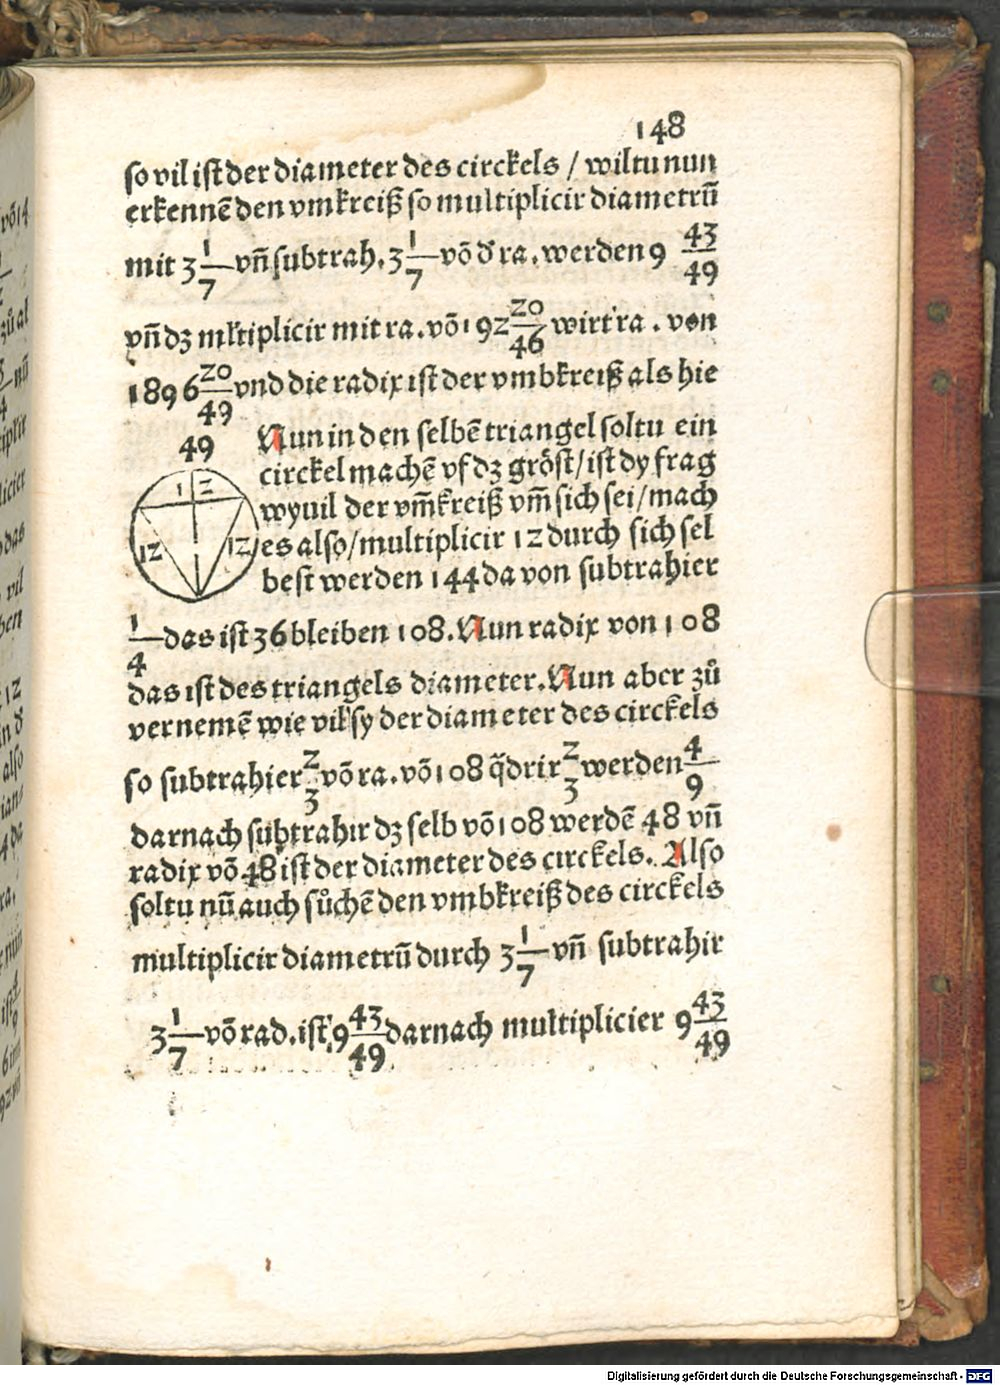 148
so vil ist der diameter des circkels / wiltu nun
erkennē den vmkreiß so multiplicir diametrū
mit 3 1/7 vñ subtrah. 3 1/7 vō d̄ ra. werden 9 43/49
vñ dz mltiplicir mit ra. vō 192 20/46 wirt ra. von
1896 20/49 vnd die radix ist der vmbkreiß als hie
49
Nun in den selbē triangel soltu ein
circkel machē vf dz gröst / ist dy frag
wyuil der vm̄kreiß vm̄ sich sei / mach
es also / multiplicir 12 durch sich sel
best werden 144 da von subtrahier
12
12
12
1/4 das ist 36 bleiben 108. Nun radix von 108
das ist des triangels diameter. Nun aber zů
vernemē wie vil sy der diameter des circkels
so subtrahier 2/3 vō ra. vō 108 q̄drir 2/3 werden 4/9
darnach subtrahir dz selb vō 108 werdē 48 vñ
radix vō 48 ist der diameter des circkels. Also
soltu nū auch sůchē den vmbkreiß des circkels
multiplicir diametrū durch 3 1/7 vñ subtrahir
3 1/7 vō rad. ist 9 43/49 darnach multiplicier 9 43/49
Digitalisierung gefördert durch die Deutsche Forschungsgemeinschaft - DFG